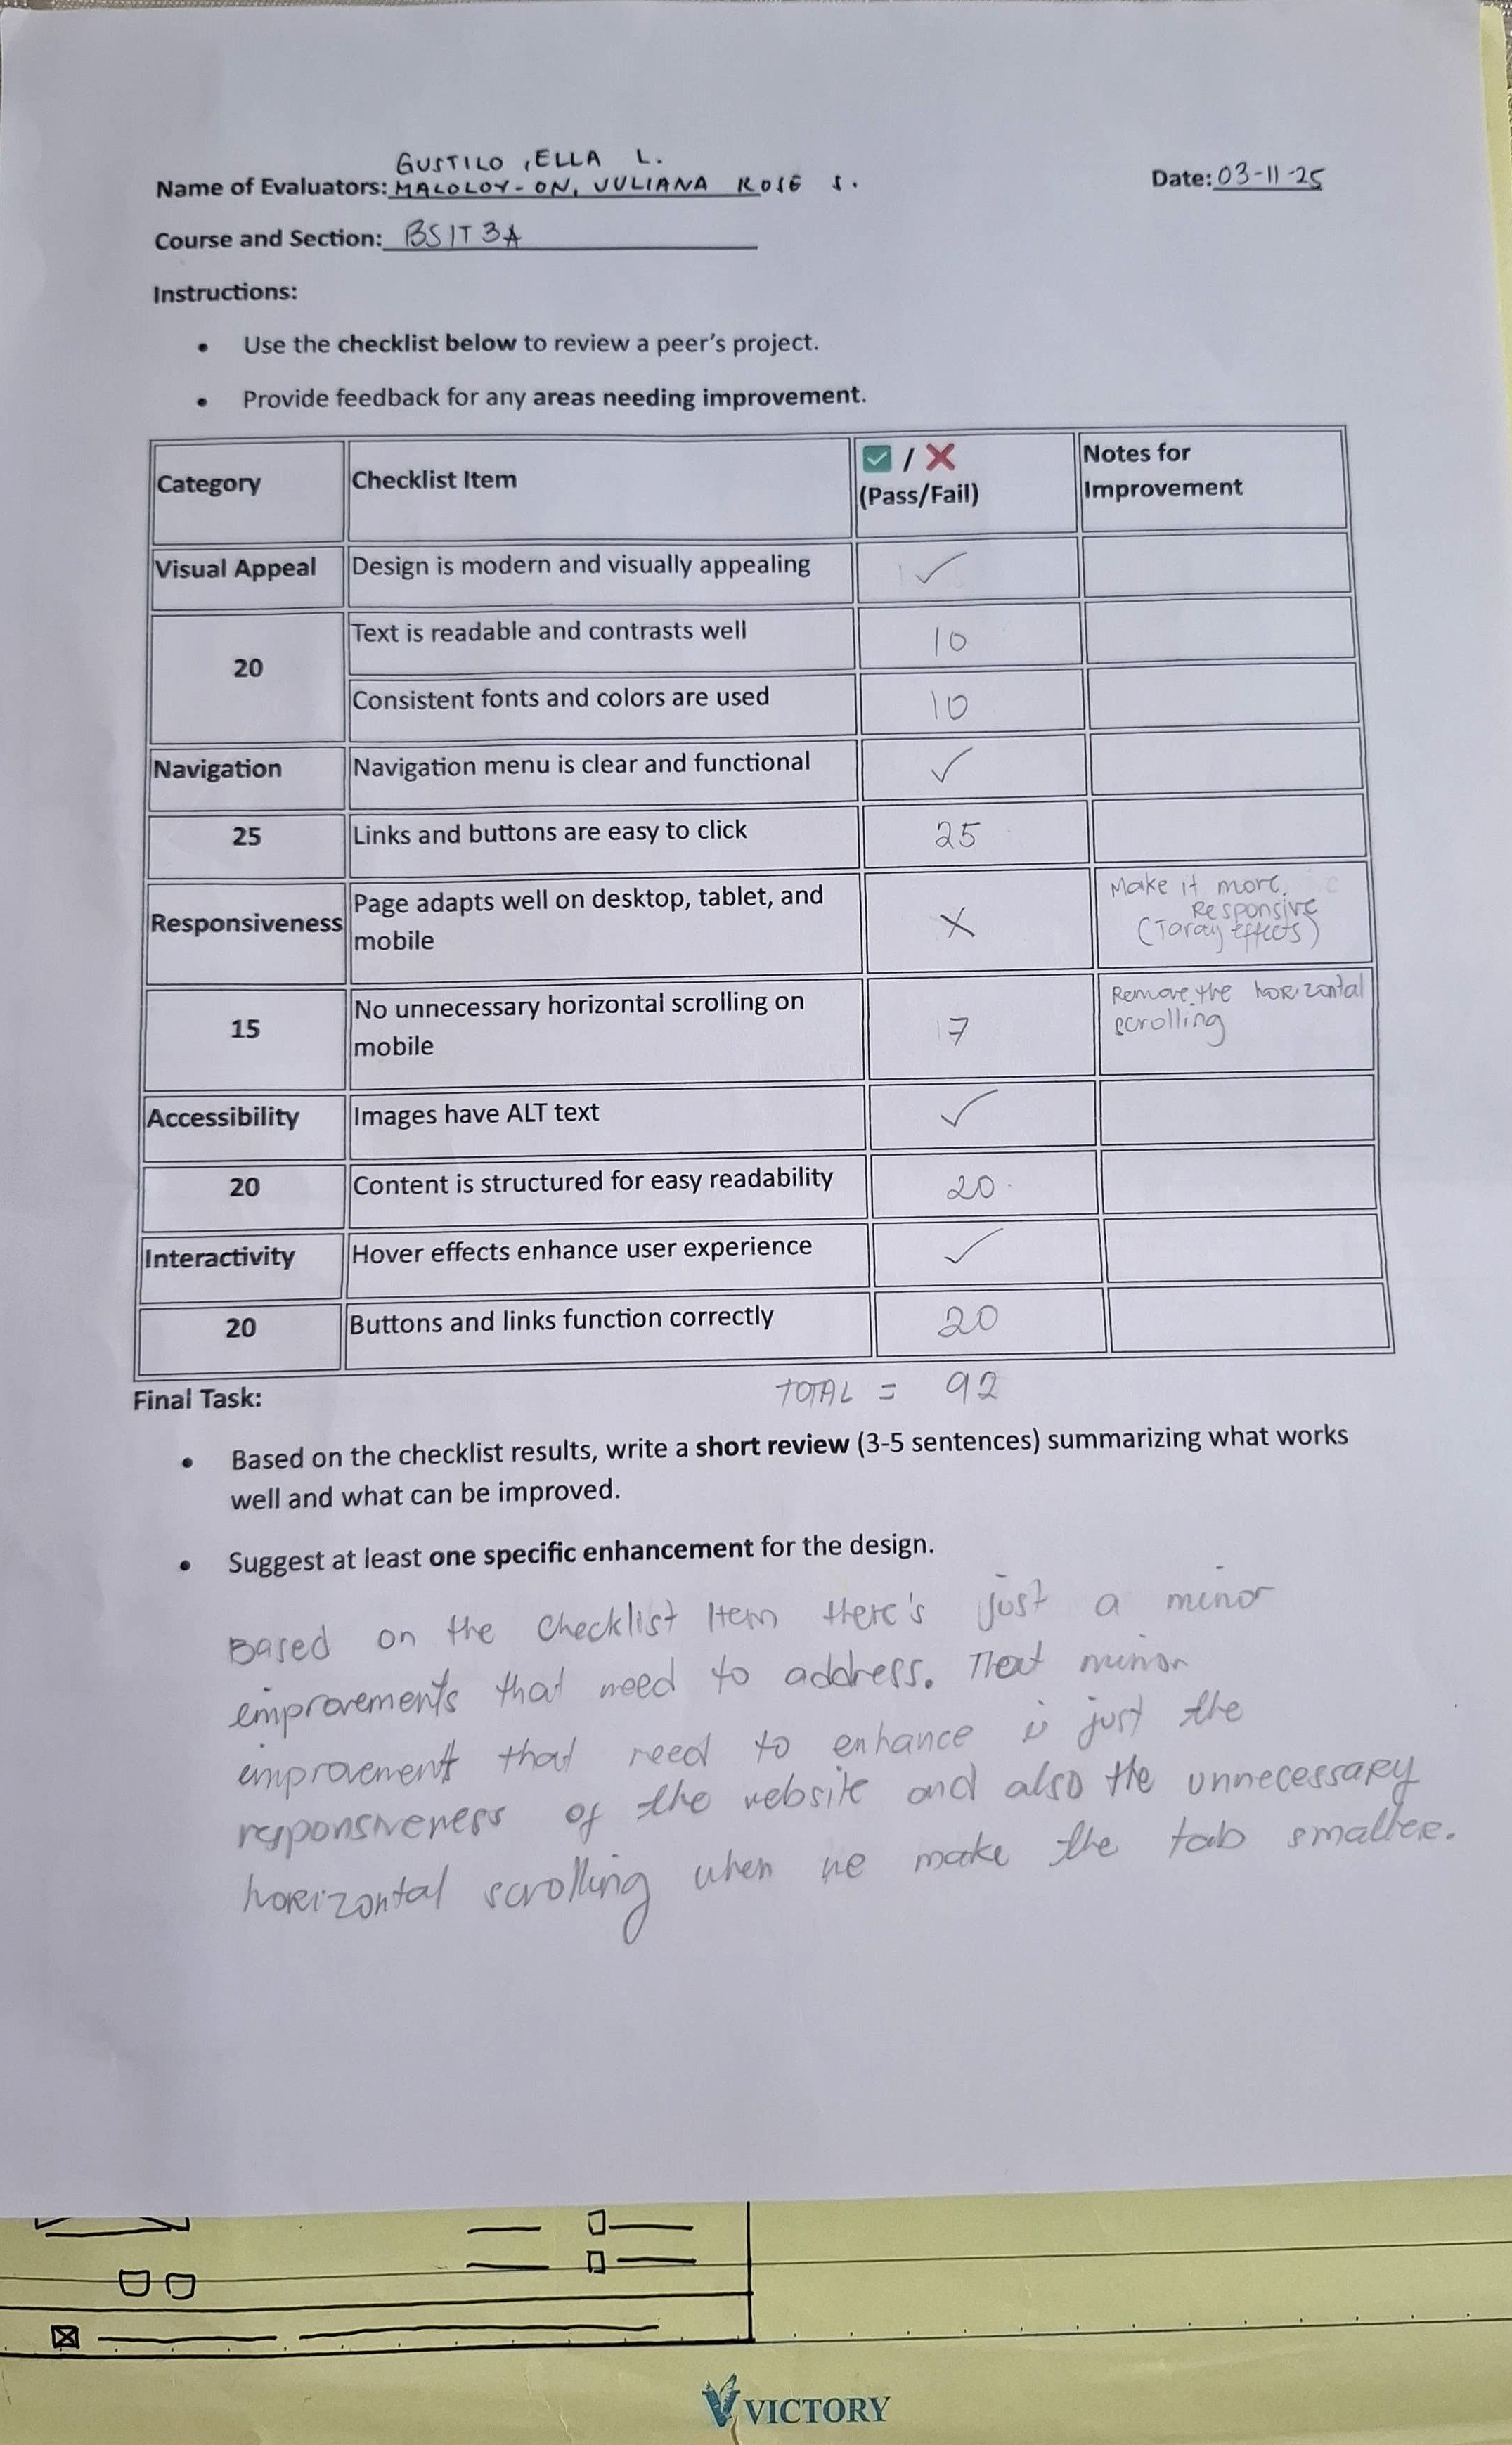 GUSTILO, ELLA L.
Name of Evaluators: MALOLOY-ON, JULIANA ROSE S.
Date: 03-11-25
Course and Section: BSIT 3A
Instructions:
• Use the checklist below to review a peer's project.
• Provide feedback for any areas needing improvement.
Category Checklist Item ✅ / ❌ (Pass/Fail) Notes for Improvement
Visual Appeal Design is modern and visually appealing ✓
20 Text is readable and contrasts well 10
Consistent fonts and colors are used 10
Navigation Navigation menu is clear and functional ✓
25 Links and buttons are easy to click 25
Responsiveness Page adapts well on desktop, tablet, and mobile X Make it more Responsive (Taray effects)
15 No unnecessary horizontal scrolling on mobile 7 Remove the horizontal scrolling
Accessibility Images have ALT text ✓
20 Content is structured for easy readability 20
Interactivity Hover effects enhance user experience ✓
20 Buttons and links function correctly 20
TOTAL = 92
Final Task:
• Based on the checklist results, write a short review (3-5 sentences) summarizing what works
well and what can be improved.
• Suggest at least one specific enhancement for the design.
Based on the Checklist Item there's just a minor
emprovements that need to address. That minor
emprovement that need to enhance is just the
responsiveness of the website and also the unnecessary
horizontal scrolling when we make the tab smaller.
VICTORY